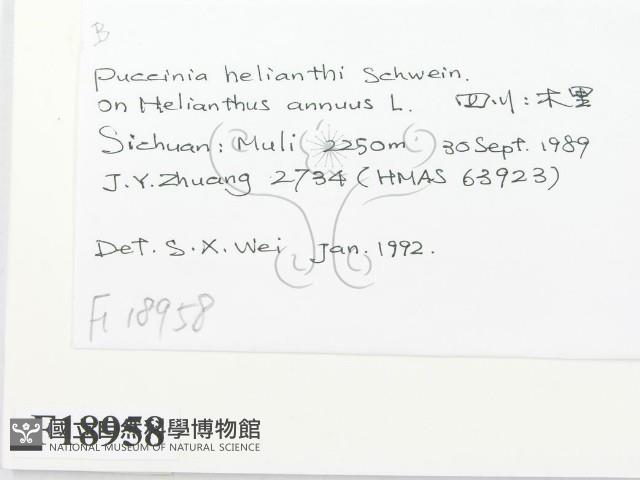 B
Puccinia helianthi Schwein.
on Helianthus annuus L. 四川:木里
Sichuan: Muli 2250m 30 Sept. 1989
J.Y. Zhuang 2734 (HMAS 63923)
Det. S.X. Wei Jan. 1992.
F 18958
F18958
國立自然科學博物館
NATIONAL MUSEUM OF NATURAL SCIENCE